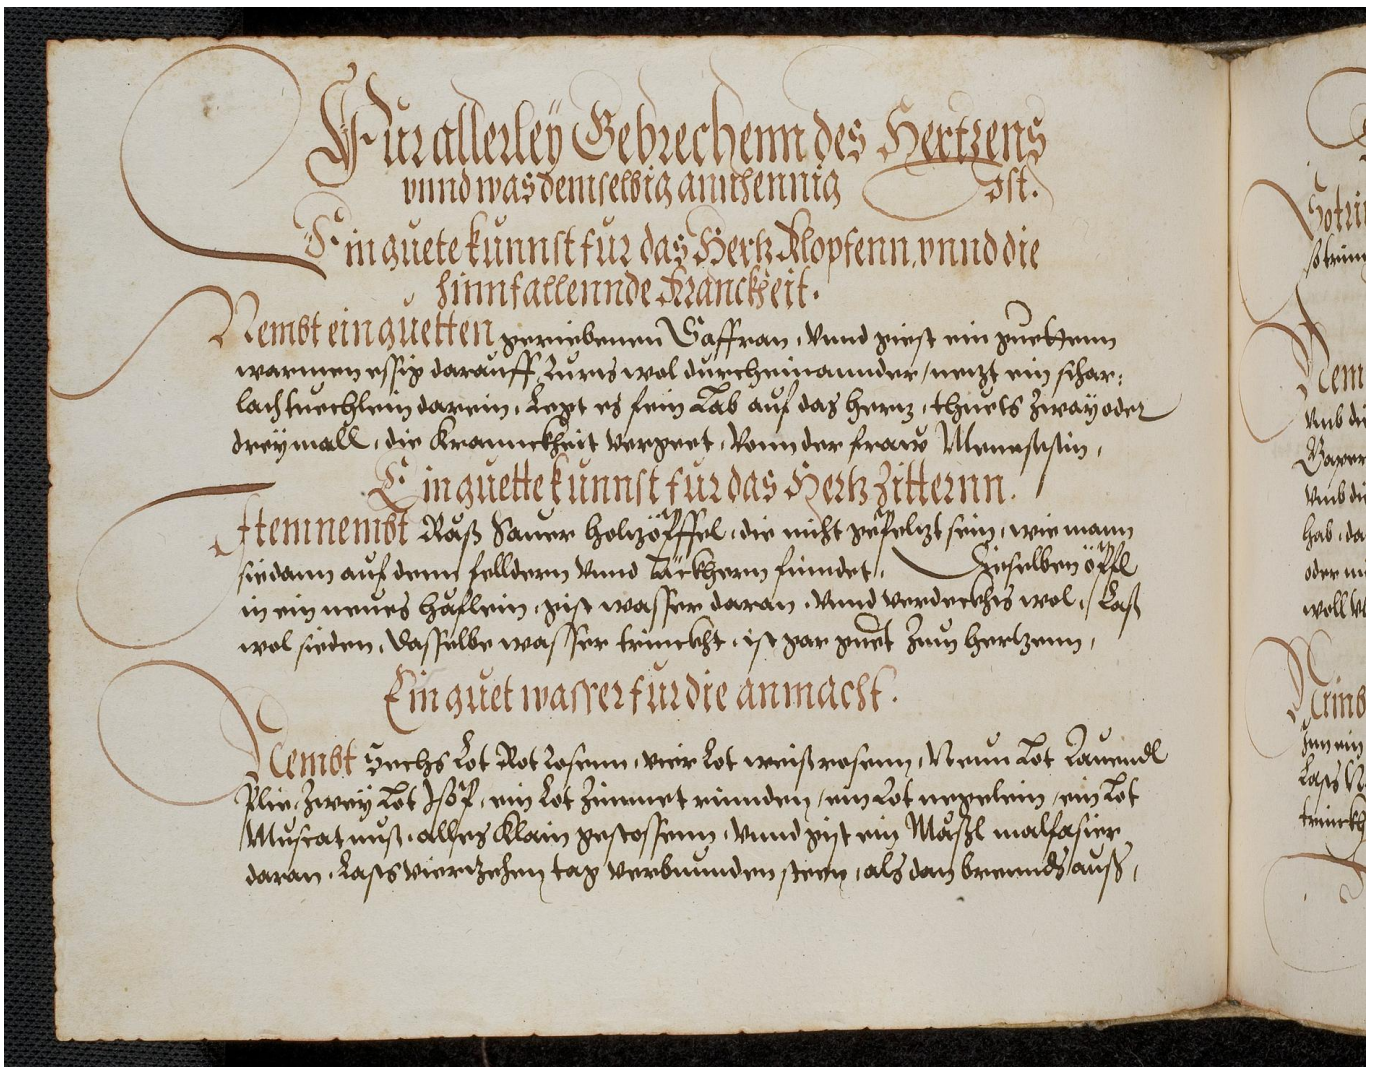 Fur allerley Gebrechenn des Hertzens
vnnd was demselbig annhennig ist.
Ein guete kunnst fur das Hertz Klopfenn, vnnd die
hinnfallennde Kranckheit.
Nembt ein guetten geriebenen Saffran, vnnd giest ein guettenn
warmen essig darauff, Ruers wol durcheinannder / netzt ein schar:
lach tuechlein darein, Legt es fein Lab auf das hertz, thuets zway oder
dreymall, die Krannckheit vergeet, vonn der fraw
Ein guette kunnst fur das Hertz Zitternn.
Item nembt Raß Saner holtzöpffel, die nicht gepeltzt sein, wie mann
sie dann auf denn felldern vnnd äckhern finndet, Dieselben öpffl
in ein neues häflein, gist wasser daran, vnnd verdeckhts wol, Laß
wol sieden, dasselbe wasser trinckht, ist gar guet zum hertzenn,
Ein guet wasser fur die anmacht.
Nembt Sechs Lot Rot Rosenn, vier Lot weis rosenn, Neun Lot Lauendl
Plie, Zwey Lot Isop, ein Lot Zimmet rinnden / ein Lot negelein / ein Lot
Muscatnuß, alles Klain gestossenn, vnnd gist ein Mäßl malfasier
daran, Lasts vierzehen tag verbunnden steen, als dan brennds auß,